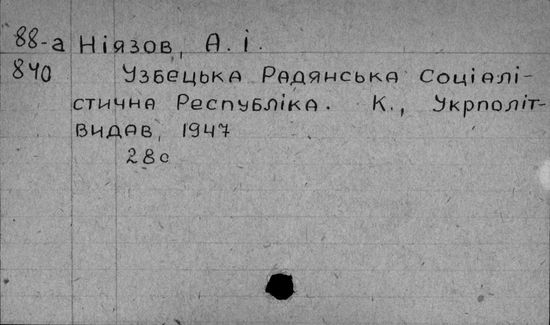 88-а Ніязов, А. І.
840 Узбецька Радянська Соціалі-
стична Республіка. К., Укрполіт-
видав, 1947
28с